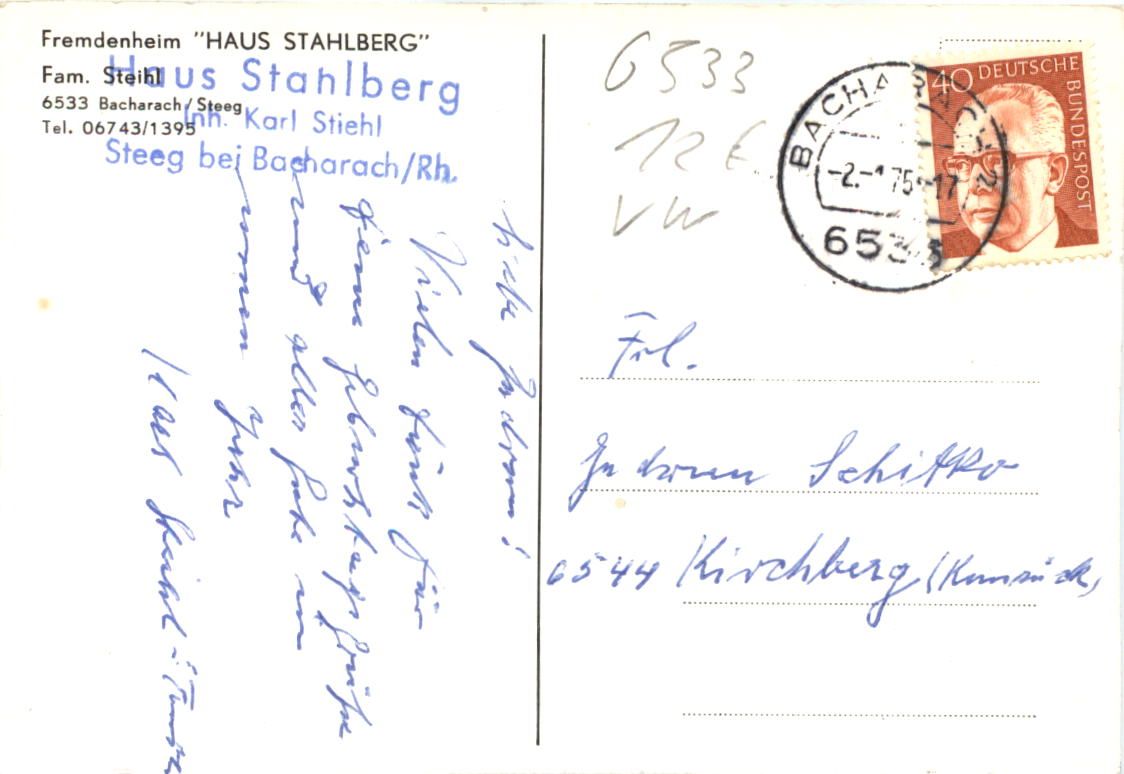 Fremdenheim "HAUS STAHLBERG"
Fam. Steihl
6533 Bacharach/Steeg
Tel. 06743/1395
Haus Stahlberg
Inh. Karl Stiehl
Steeg bei Bacharach/Rh.
Liebe Gudrun!
Vielen Dank für
Deine Geburtstagsgrüße
und alles Gute im
neuen Jahr
6533
12 E
VW
BACHARACH 2
-2.-1.75-17
6533
40 DEUTSCHE
BUNDESPOST
Frl.
Gudrun Schitko
6544 Kirchberg (Hunsrück)